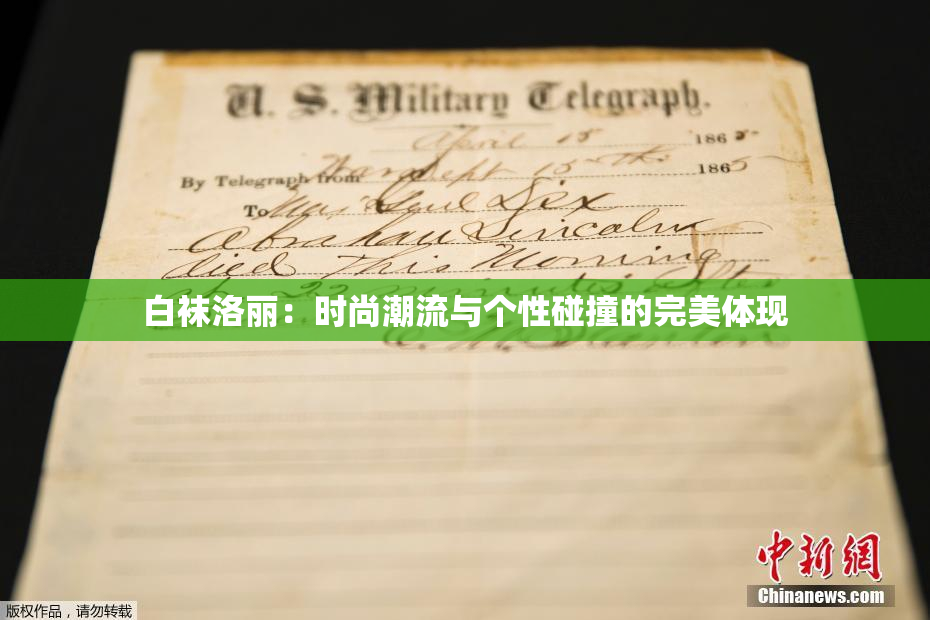 U. S. Military Telegraph.
April 15 1865
By Telegraph from War Dept 15th 1865
To Maj Genl Dix
Abraham Lincoln
died This Morning
at 22 minutes after
白袜洛丽：时尚潮流与个性碰撞的完美体现
中新网
Chinanews.com
版权作品，请勿转载